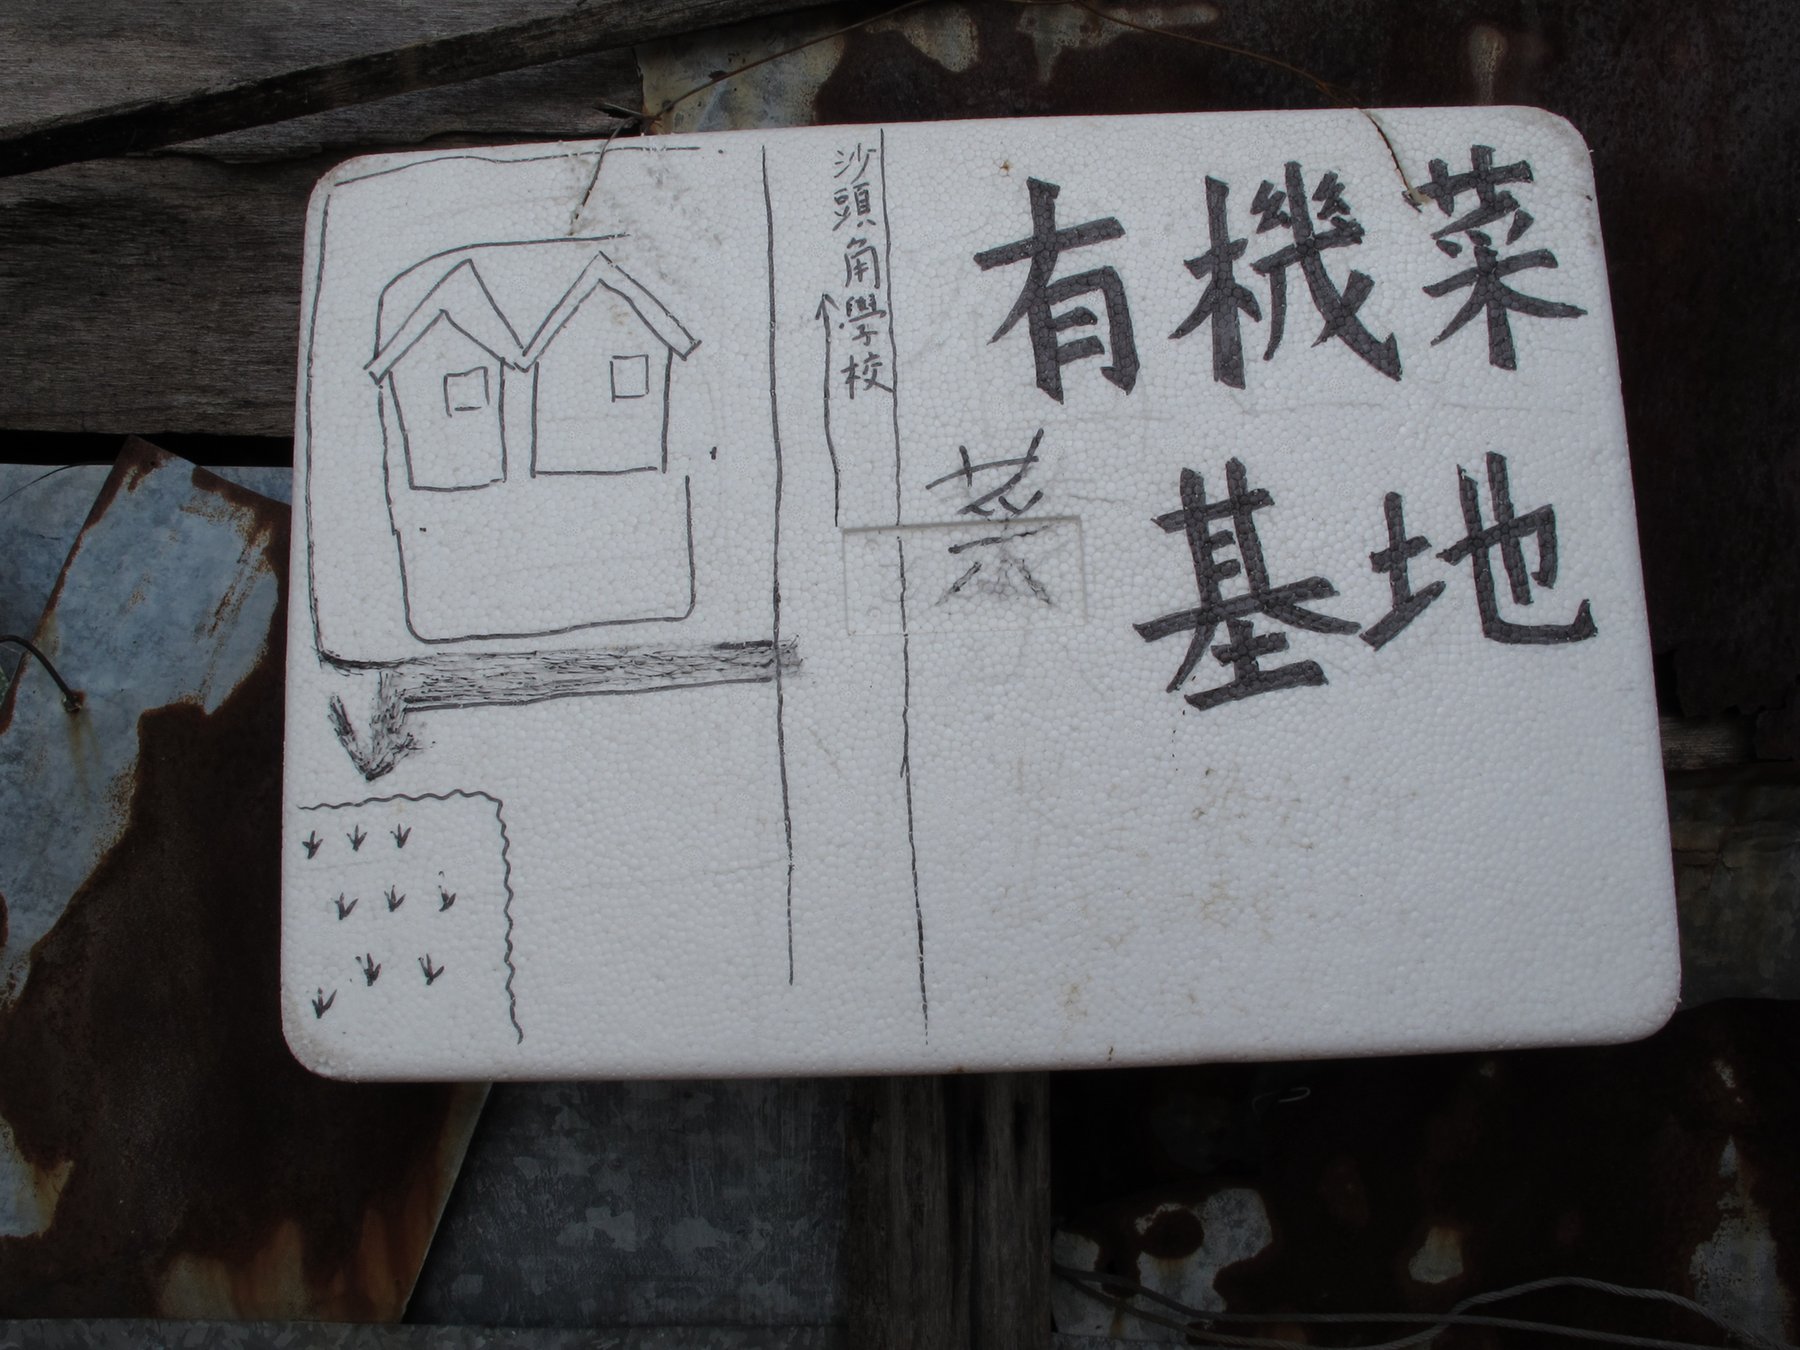 有機菜
基地
菜
沙頭角學校